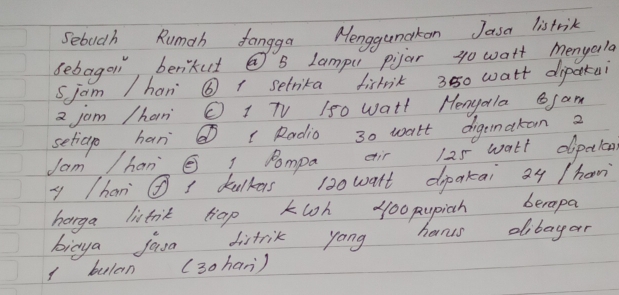 Sebuah Rumah tangga Menggunakan Jasa listrik
sebagai berikut ⓐ 5 lampu pijar 40 watt Menyala
5 jam / hari ⓑ 1 setrika listrik 350 watt dipakai
2 jam / hari ⓒ 1 TV 150 watt Menyala 6 jam
setiap hari ⓓ 1 Radio 30 watt digunakan 2
Jam / hari ⓔ 1 Pompa air 125 watt dipakai
4 / hari ⓕ 1 kulkas 120 watt dipakai 24 / hari
harga listrik tiap kwh 400 rupiah berapa
biaya jasa listrik yang harus dibayar
1 bulan (30 hari)